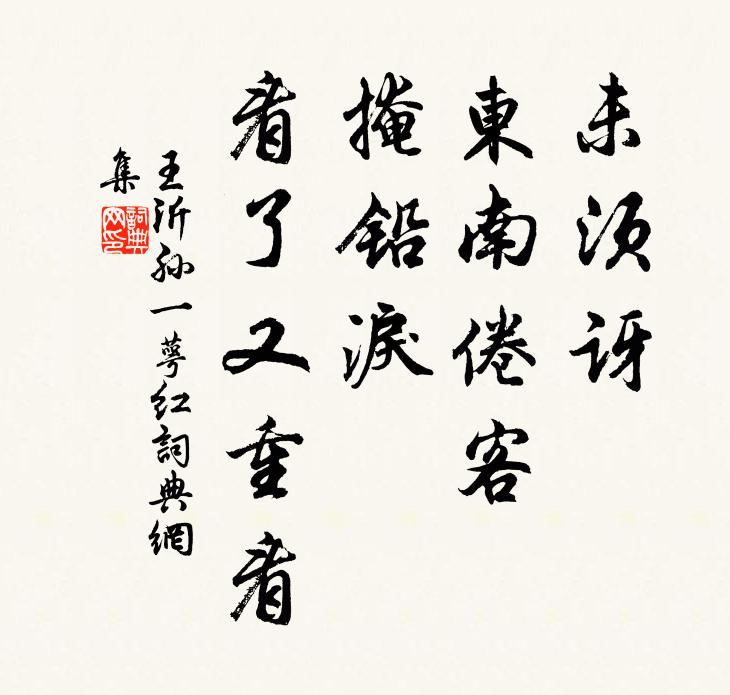 未須訝
東南倦客
掩鉛淚
看了又重看
王沂孫一萼紅詞典網
集
詞典
網印